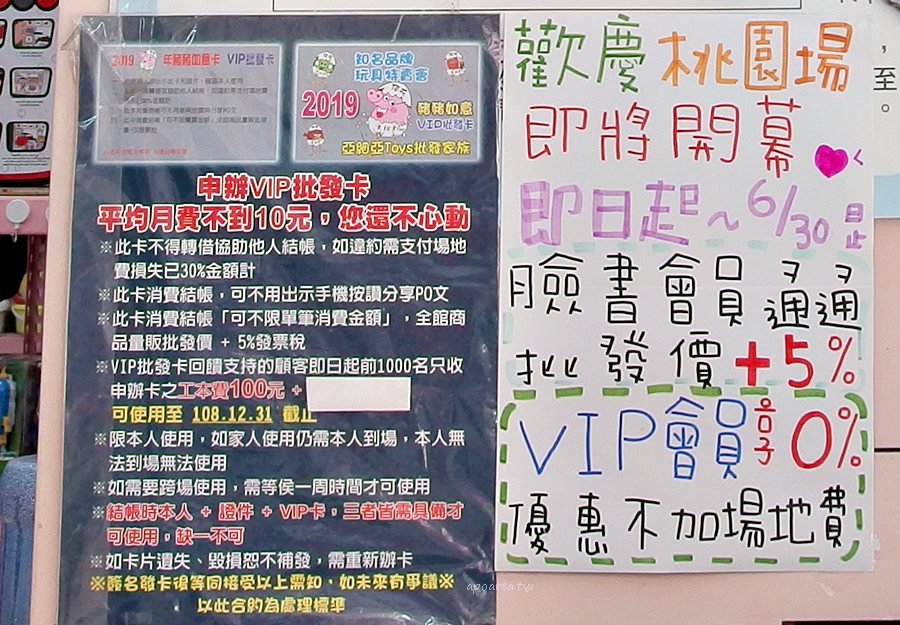 2019 年豬豬如意卡 VIP批發卡
知名品牌
玩具特賣會
2019
豬豬如意
VIP批發卡
亞細亞Toys批發家族
申辦VIP批發卡
平均月費不到10元，您還不心動
※此卡不得轉借協助他人結帳，如違約需支付場地
費損失已30%金額計
※此卡消費結帳，可不用出示手機按讚分享PO文
※此卡消費結帳「可不限單筆消費金額」，全館商
品量販批發價 + 5%發票稅
※VIP批發卡回饋支持的顧客即日起前1000名只收
申辦卡之工本費100元 +
可使用至 108.12.31 截止
※限本人使用，如家人使用仍需本人到場，本人無
法到場無法使用
※如需要跨場使用，需等侯一周時間才可使用
※結帳時本人 + 證件 + VIP卡，三者皆需具備才
可使用，缺一不可
※如卡片遺失、毀損恕不補發，需重新辦卡
※簽名發卡後等同接受以上需知，如未來有爭議※
以此合約為處理標準
歡慶桃園場
即將開幕
即日起~6/30日止
臉書會員通通
批發價+5%
VIP會員享0%
優惠不加場地費
至
apoarea.tw